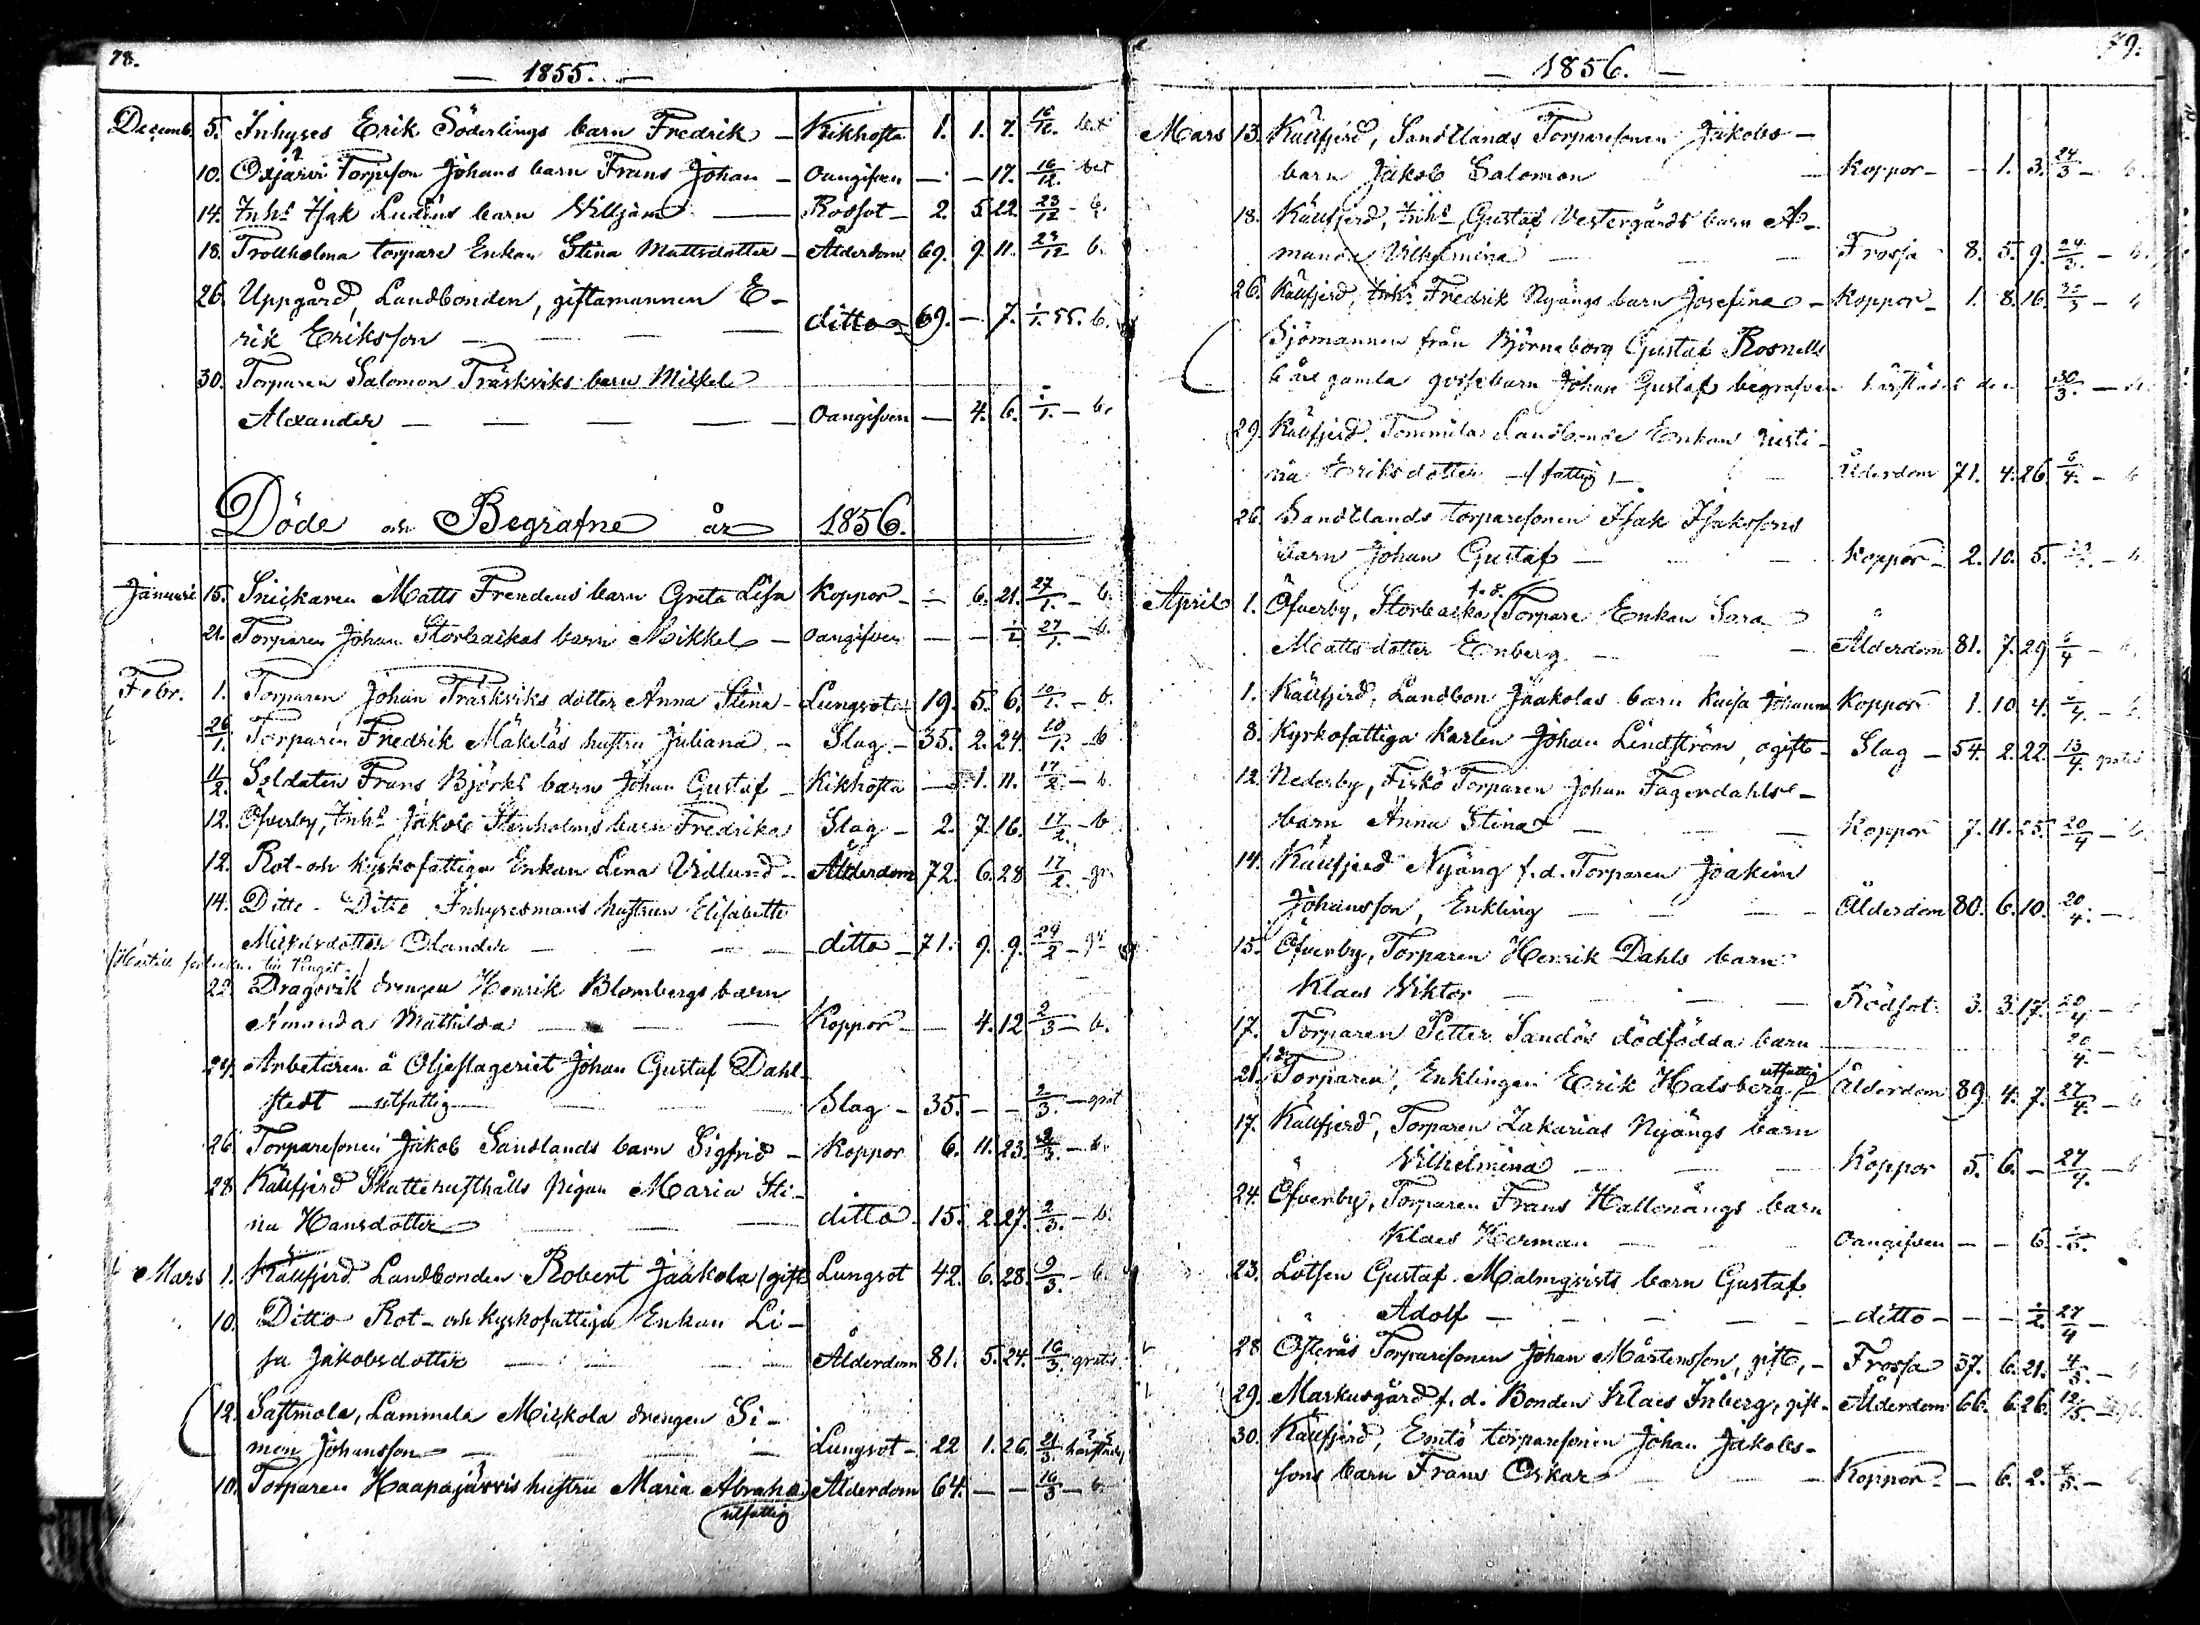 78.
— 1855. —
Decemb. 5. Inhyses Erik Söderlings barn Fredrik — Kikhosta 1. 1. 7. 16/12. bet
10. Oxjärvi Torpson Johans barn Frans Johan — Oangifven — — 17. 16/12. bet
14. Inhs Isak Ludéns barn Viljam — Rödsot — 2. 5. 22. 23/12 — b.
18. Trollholma torpare Enkan Stina Mattsdotter — Ålderdom 69. 9. 11. 23/12 b.
26. Uppgård, Landbonden, giftamannen E-
rik Eriksson — — — ditto — 69. — 7. 1/1. 56. b.
30. Torparen Salomon Träskviks barn Mikkel
Alexander — — — — Oangifven — 4. 6. 1/1. — b.
Döde och Begrafne år 1856.
Januari 15. Snickaren Matts Frendens barn Greta Lisa Koppor — — 6. 21. 27/1. — b.
21. Torparen Johan Storbackas barn Mikkel — Oangifven — — 1/2 27/1. — b.
Febr. 1. Torparen Johan Träskviks dotter Anna Stina — Lungsot 19. 5. 6. 10/1. — b.
26/1. Torparen Fredrik Mäkeläs hustru Juliana — Slag — 35. 2. 24. 10/1. — b
11/2. Soldaten Frans Björks barn Johan Gustaf — Kikhosta — 1. 11. 17/2. — b.
12. Öfverby, Inhs Jakob Stenholms barn Fredrika Slag — 2. 7. 16. 17/2. — b
12. Rot- och Kyrkofattiga Enkan Lena Vidlund — Ålderdom 72. 6. 28 17/2. — gr.
14. Ditto — Ditto Inhysesmans hustrun Elisabetta
Mickelsdotter Olander — — — ditto — 71. 9. 9. 24/2 — gr
22. Dragsvik drengen Henrik Blombergs barn
Amanda Mathilda — — Koppor — — 4. 12 2/3 — b.
24. Arbetaren å Oljeslageriet Johan Gustaf Dahl-
stedt — utfattig — — Slag — 35. — — 2/3. — grat
26. Torparesonen Jakob Sandlands barn Sigfrid — Koppor 6. 11. 23. 2/3. — b.
28. Källfjerd Skattehusthålls pigan Maria Sti-
na Hansdotter — — ditto — 15. 2. 27. 2/3. — b.
Mars 1. Källfjerd Landbonden Robert Jaakola / gift Lungsot 42. 6. 28. 9/3. — b.
10. Ditto Rot- och Kyrkofattiga Enkan Li-
sa Jakobsdotter — — — Ålderdom 81. 5. 24. 16/3. gratis
12. Sastmola, Lammela Mickola drengen Si-
mon Johansson — — — Lungsot — 22 1. 26. 21/3. härstädes
10. Torparen Haapajärvis hustru Maria Abraha Ålderdom 64. — — 16/3 — b.
utfattig
79.
— 1856. —
Mars 13. Källfjerd, Sandlands Torparesonen Jakobs —
barn Jakob Salomon — Koppor — — 1. 3. 24/3 — b.
18. Källfjerd, Inhs Gustaf Vestergårds barn A-
manda Vilhelmina — — Frossa 8. 5. 9. 24/3. — b.
26. Källfjerd, Inhs Fredrik Nyängs barn Josefina — Koppor — 1. 8. 16. 30/3 — b
Sjömannen från Björneborg Gustaf Rosnells
6 åre gamla gossebarn Johan Gustaf begrafven härstädes den 30/3. — b.
29. Källfjerd. Tommila Landbonde Enkan Justi-
na Eriksdotter — / fattig / — Ålderdom 71. 4. 26. 6/4. — b
26. Sandlands torparesonen Isak Isakssons
barn Johan Gustaf — — Koppor — 2. 10. 5. — b.
April 1. Öfverby, Storbacka f.d. Torpare Enkan Sara
Mattsdotter Enberg — — Ålderdom 81. 7. 29 6/4 — b.
1. Källfjerd, Landbon Jaakolas barn Kaisa Johanna Koppor 1. 10 4. 6/4. — b.
8. Kyrkofattiga Karlen Johan Lindström, ogift — Slag — 54. 2. 22. 13/4. gratis
12. Nederby, Fiskö Torparen Johan Fagerdahls —
barn Anna Stina — — Koppor 7. 11. 25. 20/4 — b.
14. Källfjerd Nyäng f.d. Torparen Joakim
Johansson, Enkling — — Ålderdom 80. 6. 10. 20/4. —
15. Öfverby, Torparen Henrik Dahls barn
Klaes Viktor — — Rödsot. 3. 3. 17. 20/4 — b
17. Torparen Petter Sandös dödfödda barn — 20/4. — b
21. f.d. Torparen, Enklingen Erik Halsberg, utfattig — Ålderdom 89. 4. 7. 27/4. — b
17. Källfjerd, Torparen Zakarias Nyängs barn
Vilhelmina — — Koppor 5. 6. — 27/4. — b
24. Öfverby, Torparen Frans Hallonängs barn
Klaes Herman — — Oangifven — — 6. — b.
23. Lotsen Gustaf Malmqvists barn Gustaf
Adolf — — — — ditto — — — 1/2. 27/4 —
28 Österås Torparesonen Johan Mårtensson, gift, — Frossa 37. 6. 21. 4/5. — b
29. Markusgård f.d. Bonden Klaes Inberg, gift — Ålderdom 66. 6. 26. 12/5. —
30. Källfjerd, Enitö torparesonen Johan Jakobs-
sons barn Frans Oskar — — Koppor — — 6. 2. 4/5. —